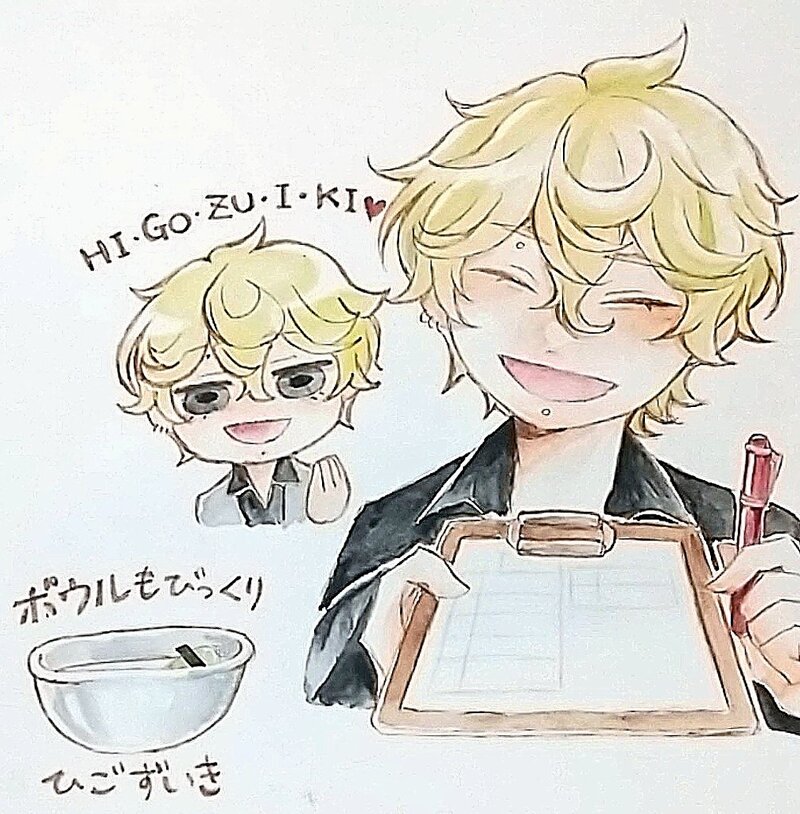 HI·GO·ZU·I·KI♥
ボウルもびっくり
ひごずいき